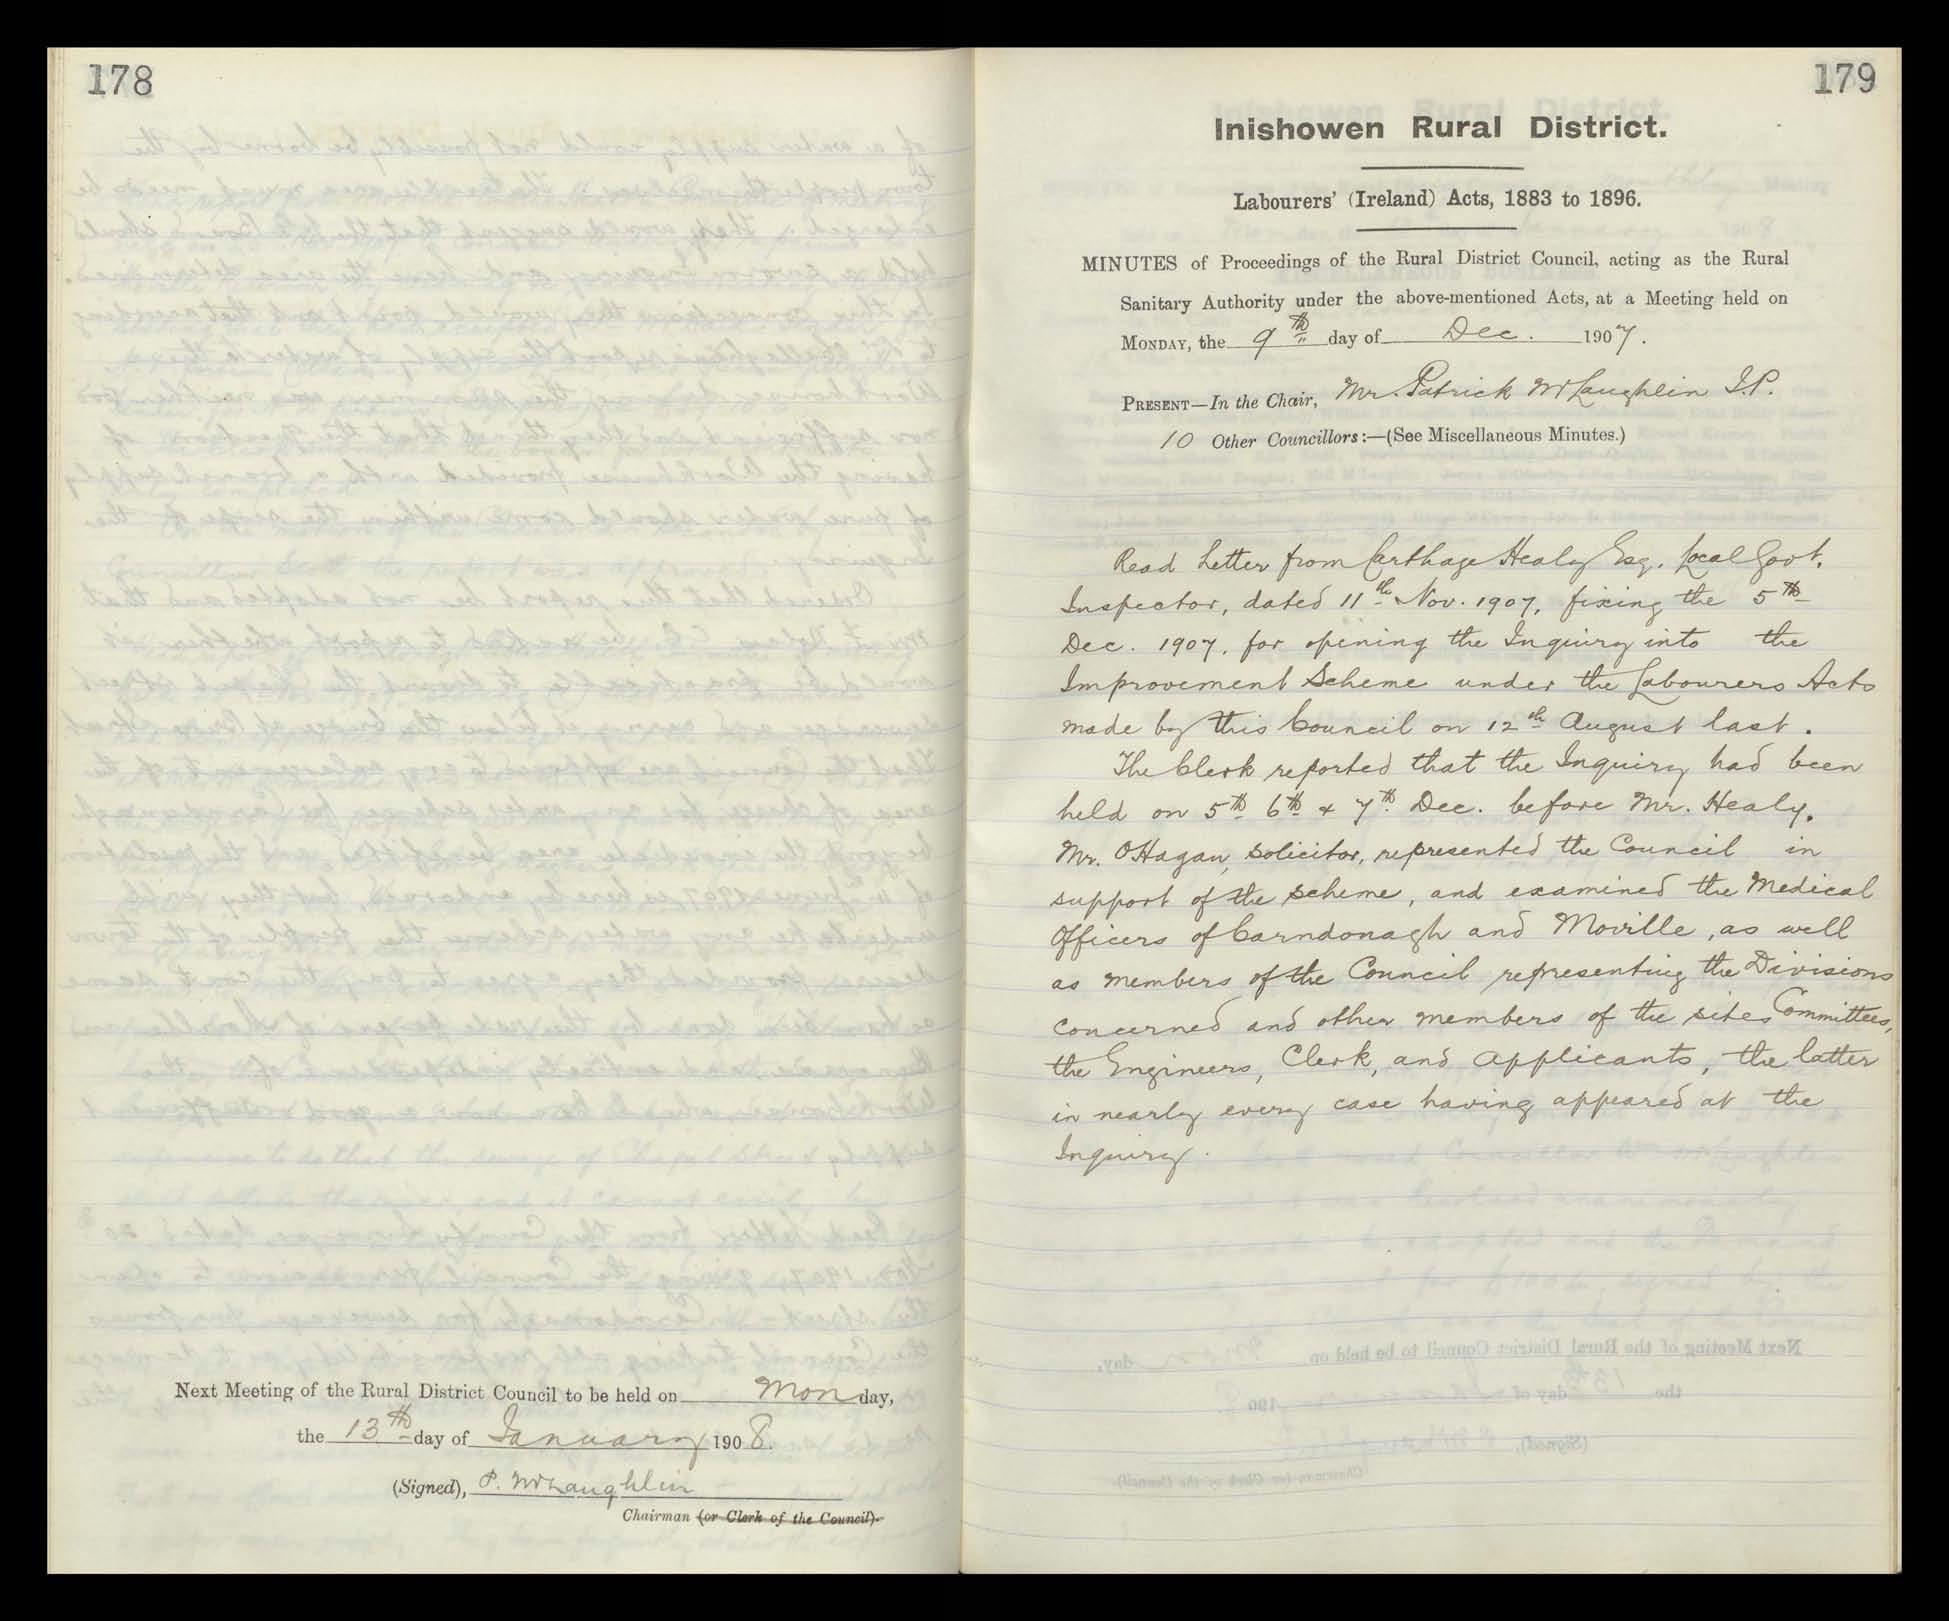 178
Next Meeting of the Rural District Council to be held on Monday,
the 13th day of January 1908.
(Signed), P. McLaughlin
Chairman (or Clerk of the Council).
179
Inishowen Rural District.
Labourers' (Ireland) Acts, 1883 to 1896.
MINUTES of Proceedings of the Rural District Council, acting as the Rural
Sanitary Authority under the above-mentioned Acts, at a Meeting held on
MONDAY, the 9th day of Dec. 1907.
PRESENT—In the Chair, Mr. Patrick McLaughlin J.P.
10 Other Councillors:—(See Miscellaneous Minutes.)
Read Letter from Carthage Healy Esq. Local Govt.
Inspector, dated 11th Nov. 1907, fixing the 5th
Dec. 1907, for opening the Inquiry into the
Improvement Scheme under the Labourers Acts
made by this Council on 12th August last.
The Clerk reported that the Inquiry had been
held on 5th 6th & 7th Dec. before Mr. Healy.
Mr. O'Hagan, Solicitor, represented the Council in
support of the scheme, and examined the Medical
Officers of Carndonagh and Moville, as well
as members of the Council representing the Divisions
concerned and other members of the sites Committees,
the Engineers, Clerk, and Applicants, the latter
in nearly every case having appeared at the
Inquiry.